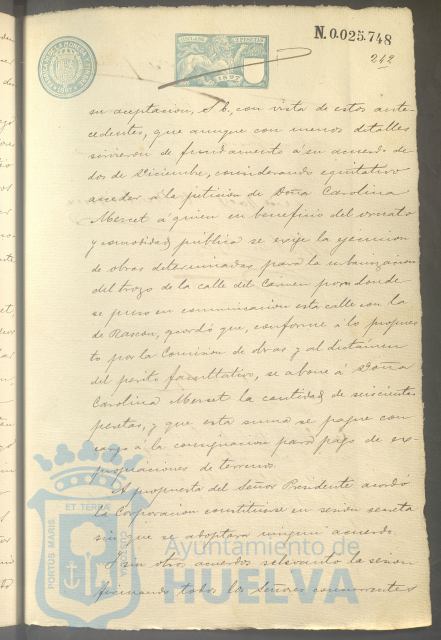 N.0.025.748
1897
212
su aceptacion, S. E., con vista de estos ante-
cedentes, que aunque con menos detalles
sirvieron de fundamento á su acuerdo de
dos de Diciembre, considerando equitativo
acceder á la peticion de Doña Carolina
Merset á quien en beneficio del ornato
y comodidad pública se exije la ejecucion
de obras determinadas para la urbanizacion
del trozo de la calle del Carmen por donde
se puso en comunicacion esta calle con la
de Rascon, acordó que, conforme a lo propues-
to por la Comision de obras y al dictamen
del perito facultativo, se abone á Doña
Carolina Merset la cantidad de seiscientas
pesetas, y que esta suma se pague con
cargo á la consignacion para pago de ex-
propiaciones de terrenos.
A propuesta del Señor Presidente acordó
la Corporacion constituirse en sesion secreta
sin que se adoptara ningun acuerdo.
Y sin otro acuerdo se levantó la sesion
firmando todos los Señores concurrentes
PORTUS MARIS ET TERRÆ CUSTODIA
Ayuntamiento de
HUELVA